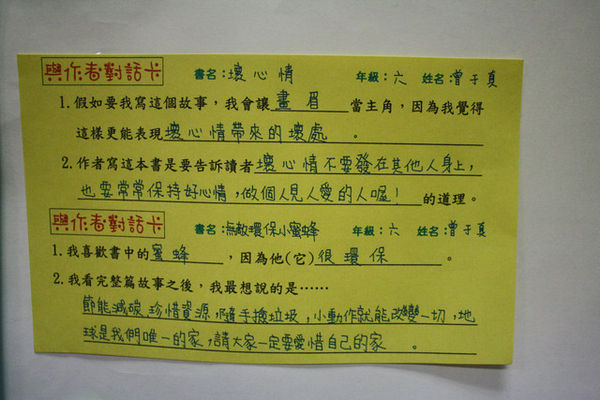 與作者對話卡 書名:壞心情 年級:六 姓名:曾子真
1.假如要我寫這個故事，我會讓畫眉當主角，因為我覺得
這樣更能表現壞心情帶來的壞處。
2.作者寫這本書是要告訴讀者壞心情不要發在其他人身上，
也要常常保持好心情，做個人見人愛的人喔！的道理。
與作者對話卡 書名:無敵環保小蜜蜂 年級:六 姓名:曾子真
1.我喜歡書中的蜜蜂，因為他(它)很環保。
2.我看完整篇故事之後，我最想說的是……
節能減碳珍惜資源，隨手撿垃圾，小動作就能改變一切，地
球是我們唯一的家，請大家一定要愛惜自己的家。